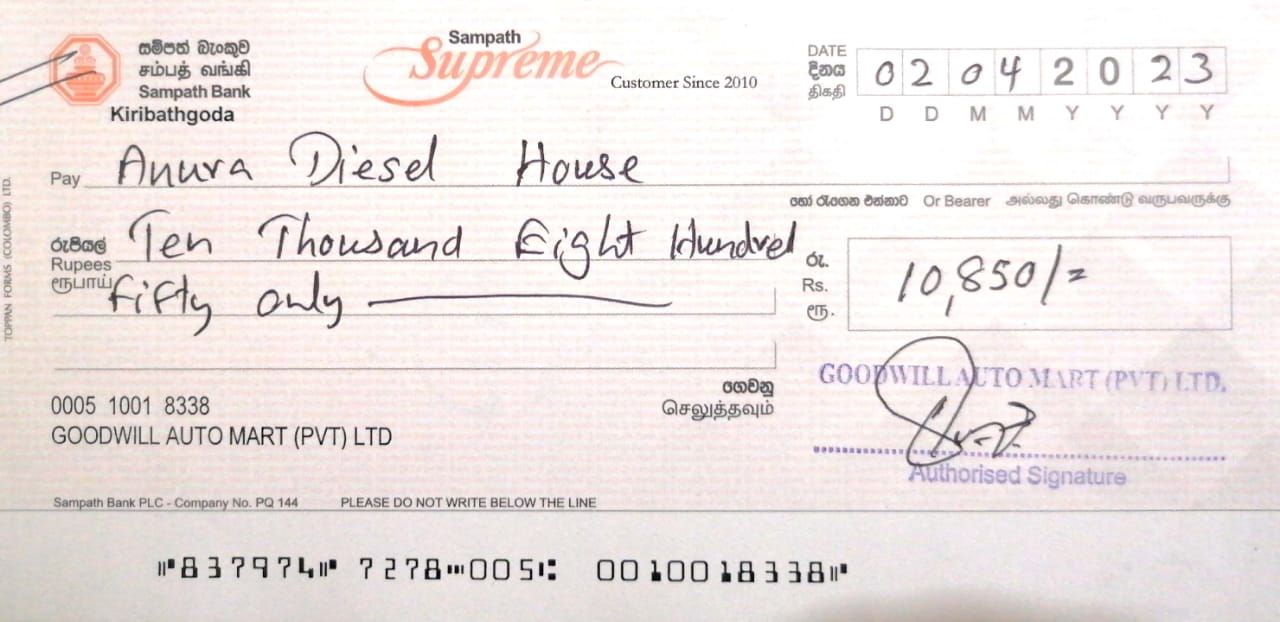 සම්පත් බැංකුව
சம்பத் வங்கி
Sampath Bank
Kiribathgoda
Sampath
Supreme
Customer Since 2010
DATE
දිනය
திகதி
0 2 0 4 2 0 2 3
D D M M Y Y Y Y
Pay Anura Diesel House
හෝ රැගෙන එන්නාට Or Bearer அல்லது கொண்டு வருபவருக்கு
රුපියල්
Rupees
ரூபாய்
Ten Thousand Eight Hundred
fifty only
රු.
Rs.
ரூ.
10,850/=
ගෙවනු
செலுத்தவும்
GOODWILL AUTO MART (PVT) LTD.
Authorised Signature
0005 1001 8338
GOODWILL AUTO MART (PVT) LTD
Sampath Bank PLC - Company No. PQ 144 PLEASE DO NOT WRITE BELOW THE LINE
⑈837974⑈ 7278⑉005⑆ 0010018338⑈
TOPPAN FORMS (COLOMBO) LTD.